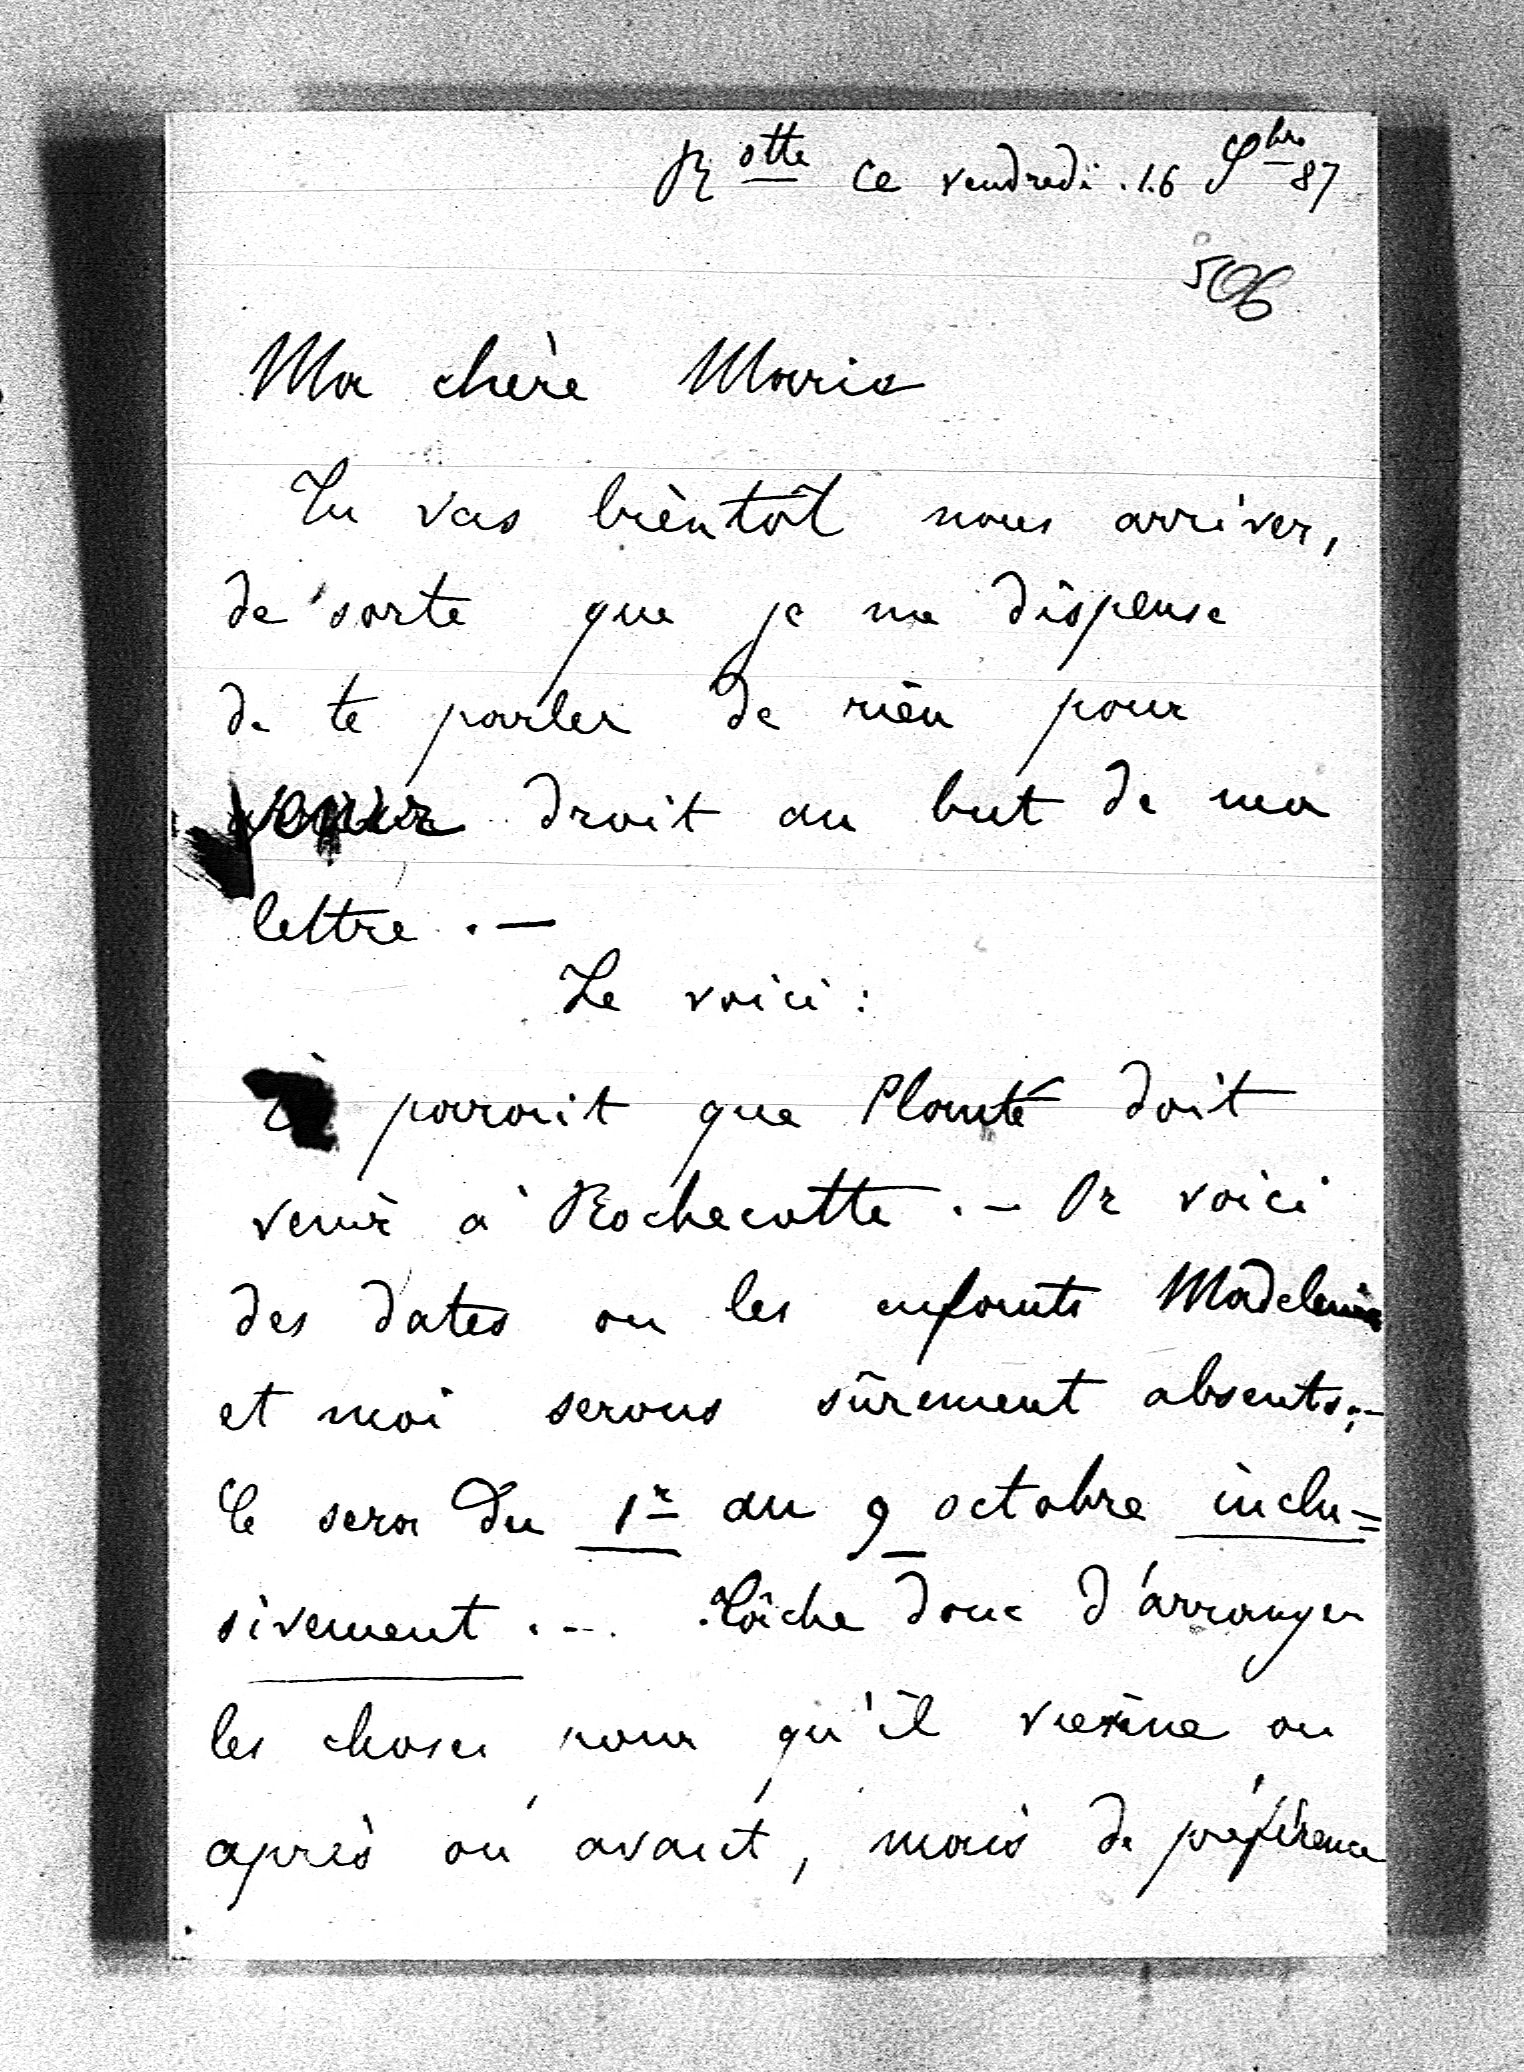 Rotte ce vendredi 16 9bre 87
506
Ma chère Marie
Tu vas bientôt nous arriver,
de sorte que je me dispense
de te parler de rien pour
venir droit au but de ma
lettre . —
Le voici :
parait que Planté doit
venir à Rochecotte . — Or voici
des dates ou les enfants Madeleine
et moi serons sûrement absents . —
Ce sera du 1r au 9 octobre inclu=
sivement . — . Tâche donc d'arranger
les choses pour qu'il vienne ou
après ou avant, mais de préférence